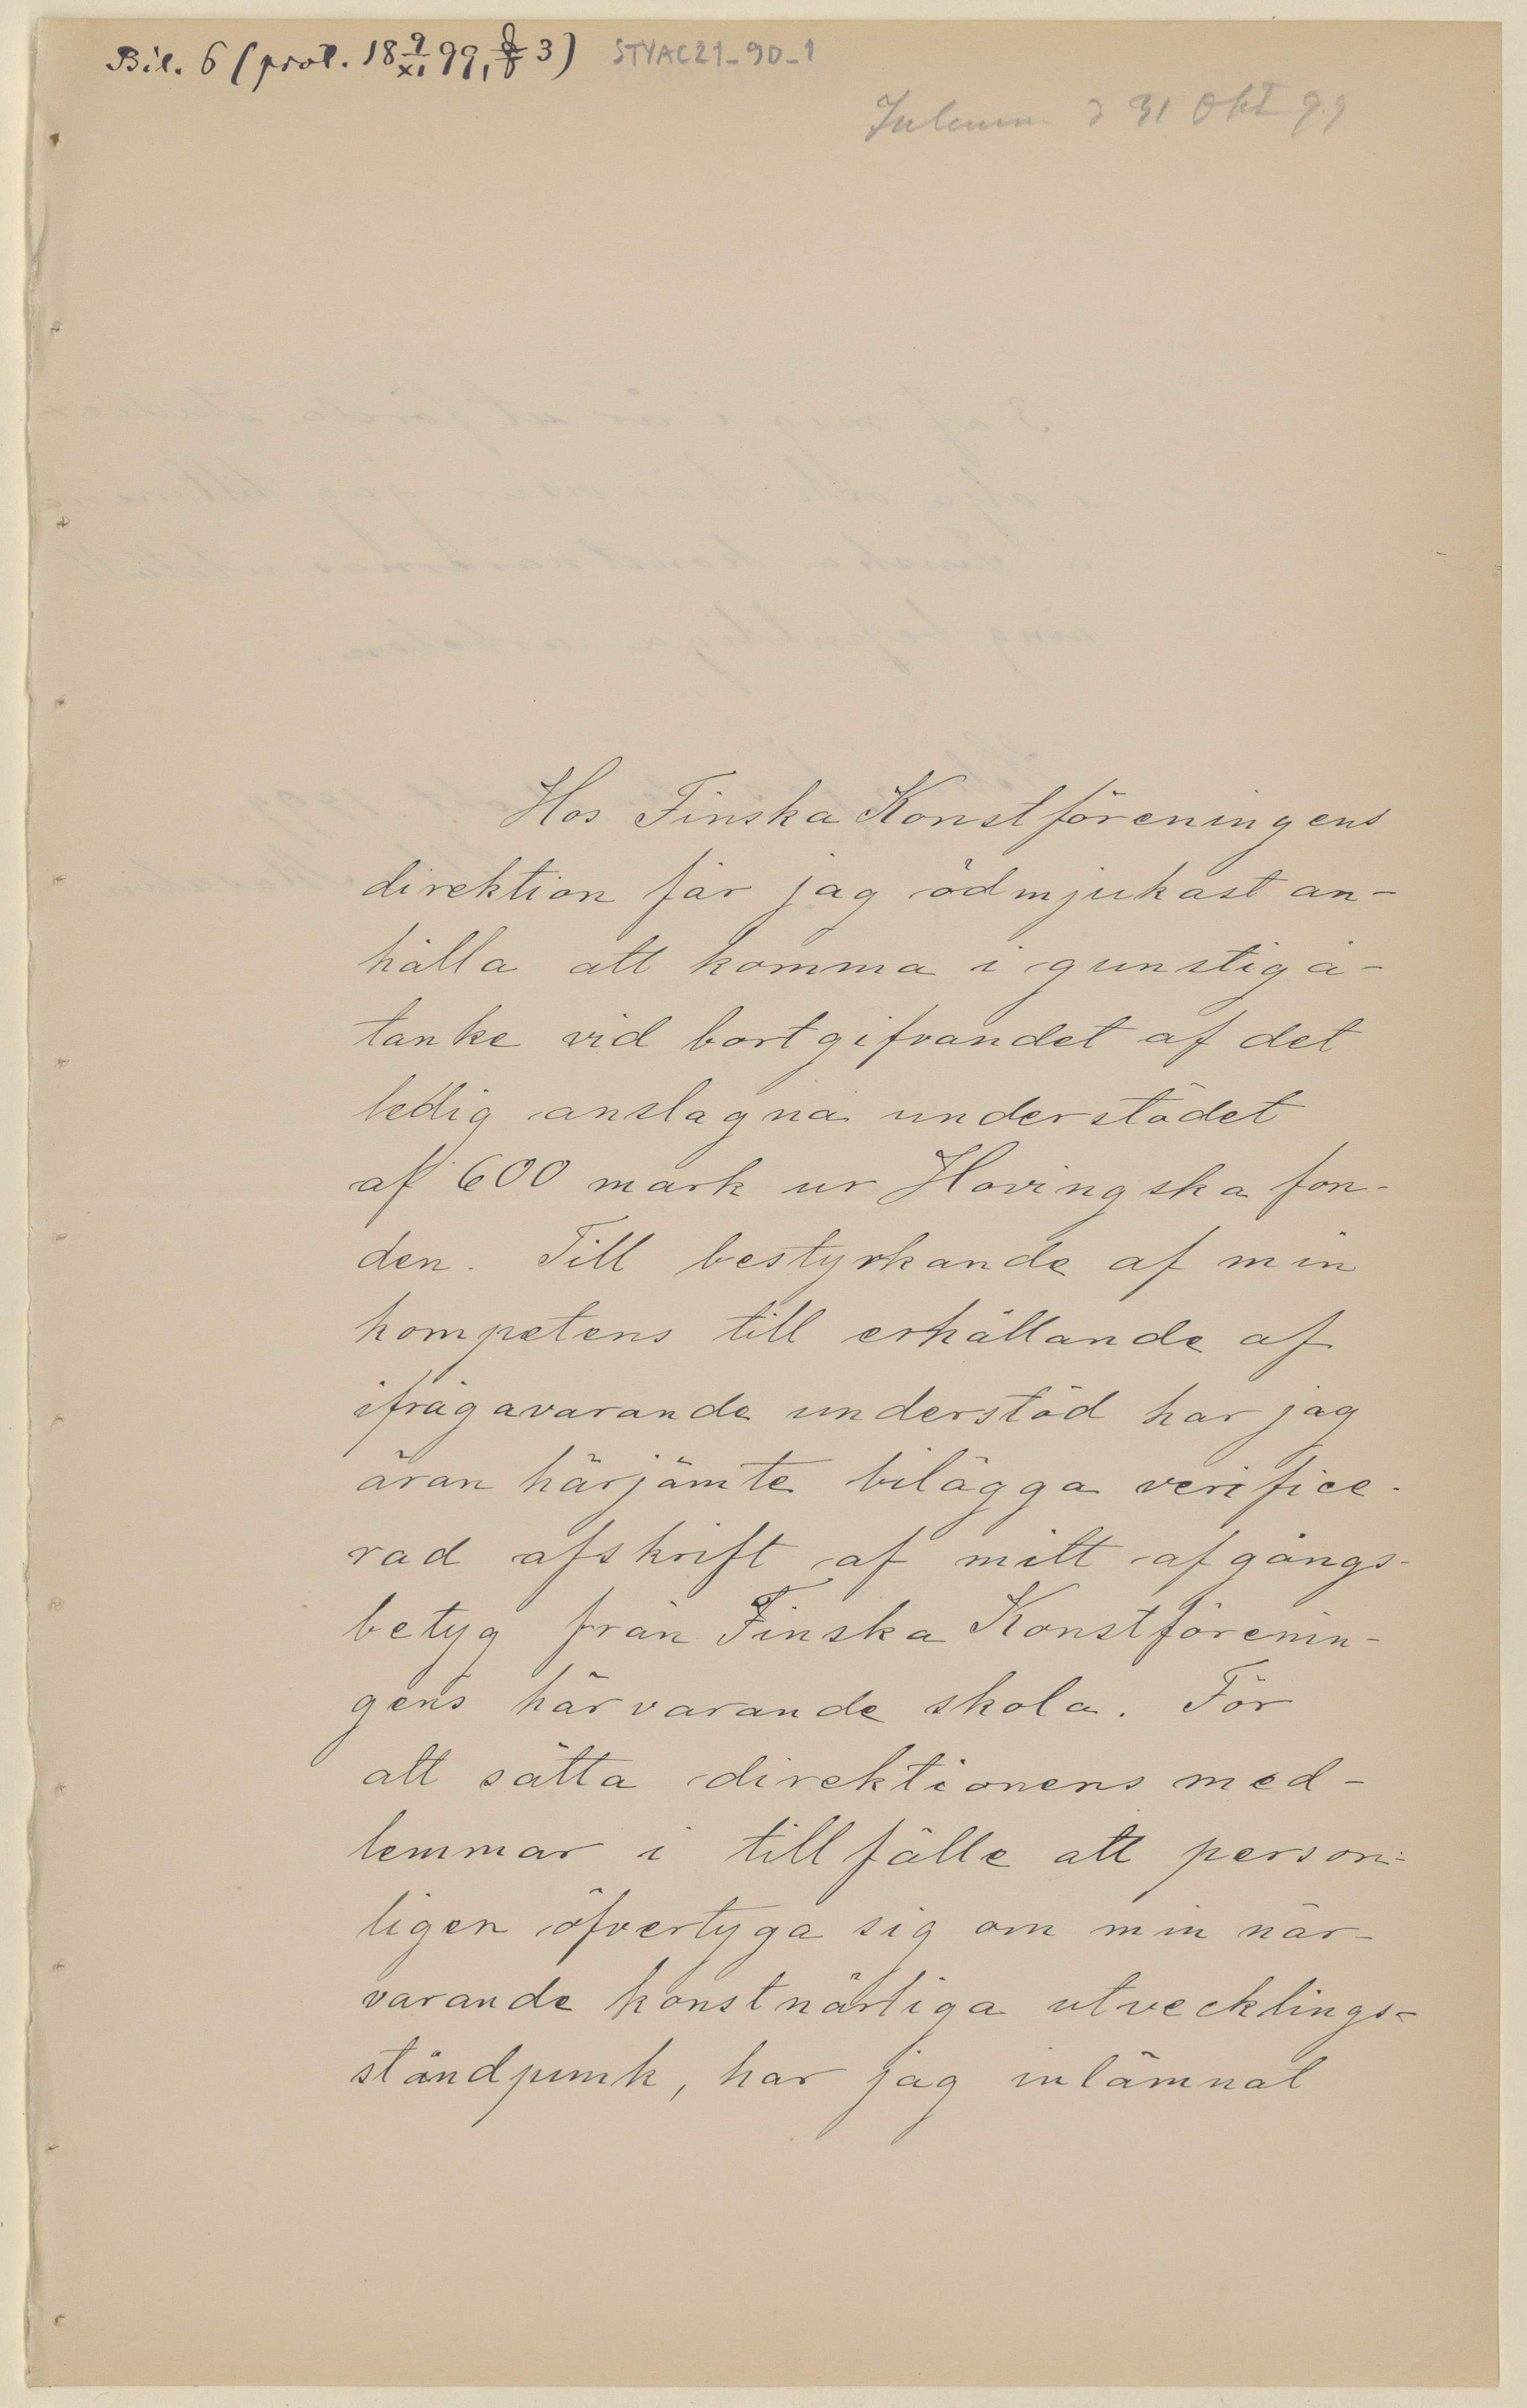 Bil. 6 (prot. 18 9/XI 99, § 3) STYAC21_90_1
d 31 Okt 99
Hos Finska Konstföreningens
direktion får jag ödmjukast an-
hålla att komma i gunstig å-
tanke vid bortgifvandet af det
ledig anslagna understödet
af 600 mark ur Hovingska fon-
den. Till bestyrkande af min
kompetens till erhållande af
ifrågavarande understöd har jag
äran härjämte bilägga verifice-
rad afskrift af mitt afgångs-
betyg från Finska Konstförenin-
gens härvarande skola. För
att sätta direktionens med-
lemmar i tillfälle att person-
ligen öfvertyga sig om min när-
varande konstnärliga utvecklings-
ståndpunk, har jag inlämnat